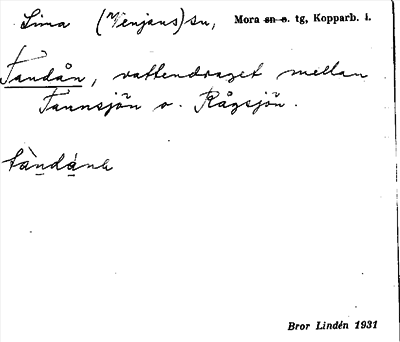 Lima (Venjans) sn, Mora sn o. tg, Kopparb. l.
Tandån, vattendraget mellan
Tannsjön o. Rågsjön.
tàndánɑ
Bror Lindén 1931